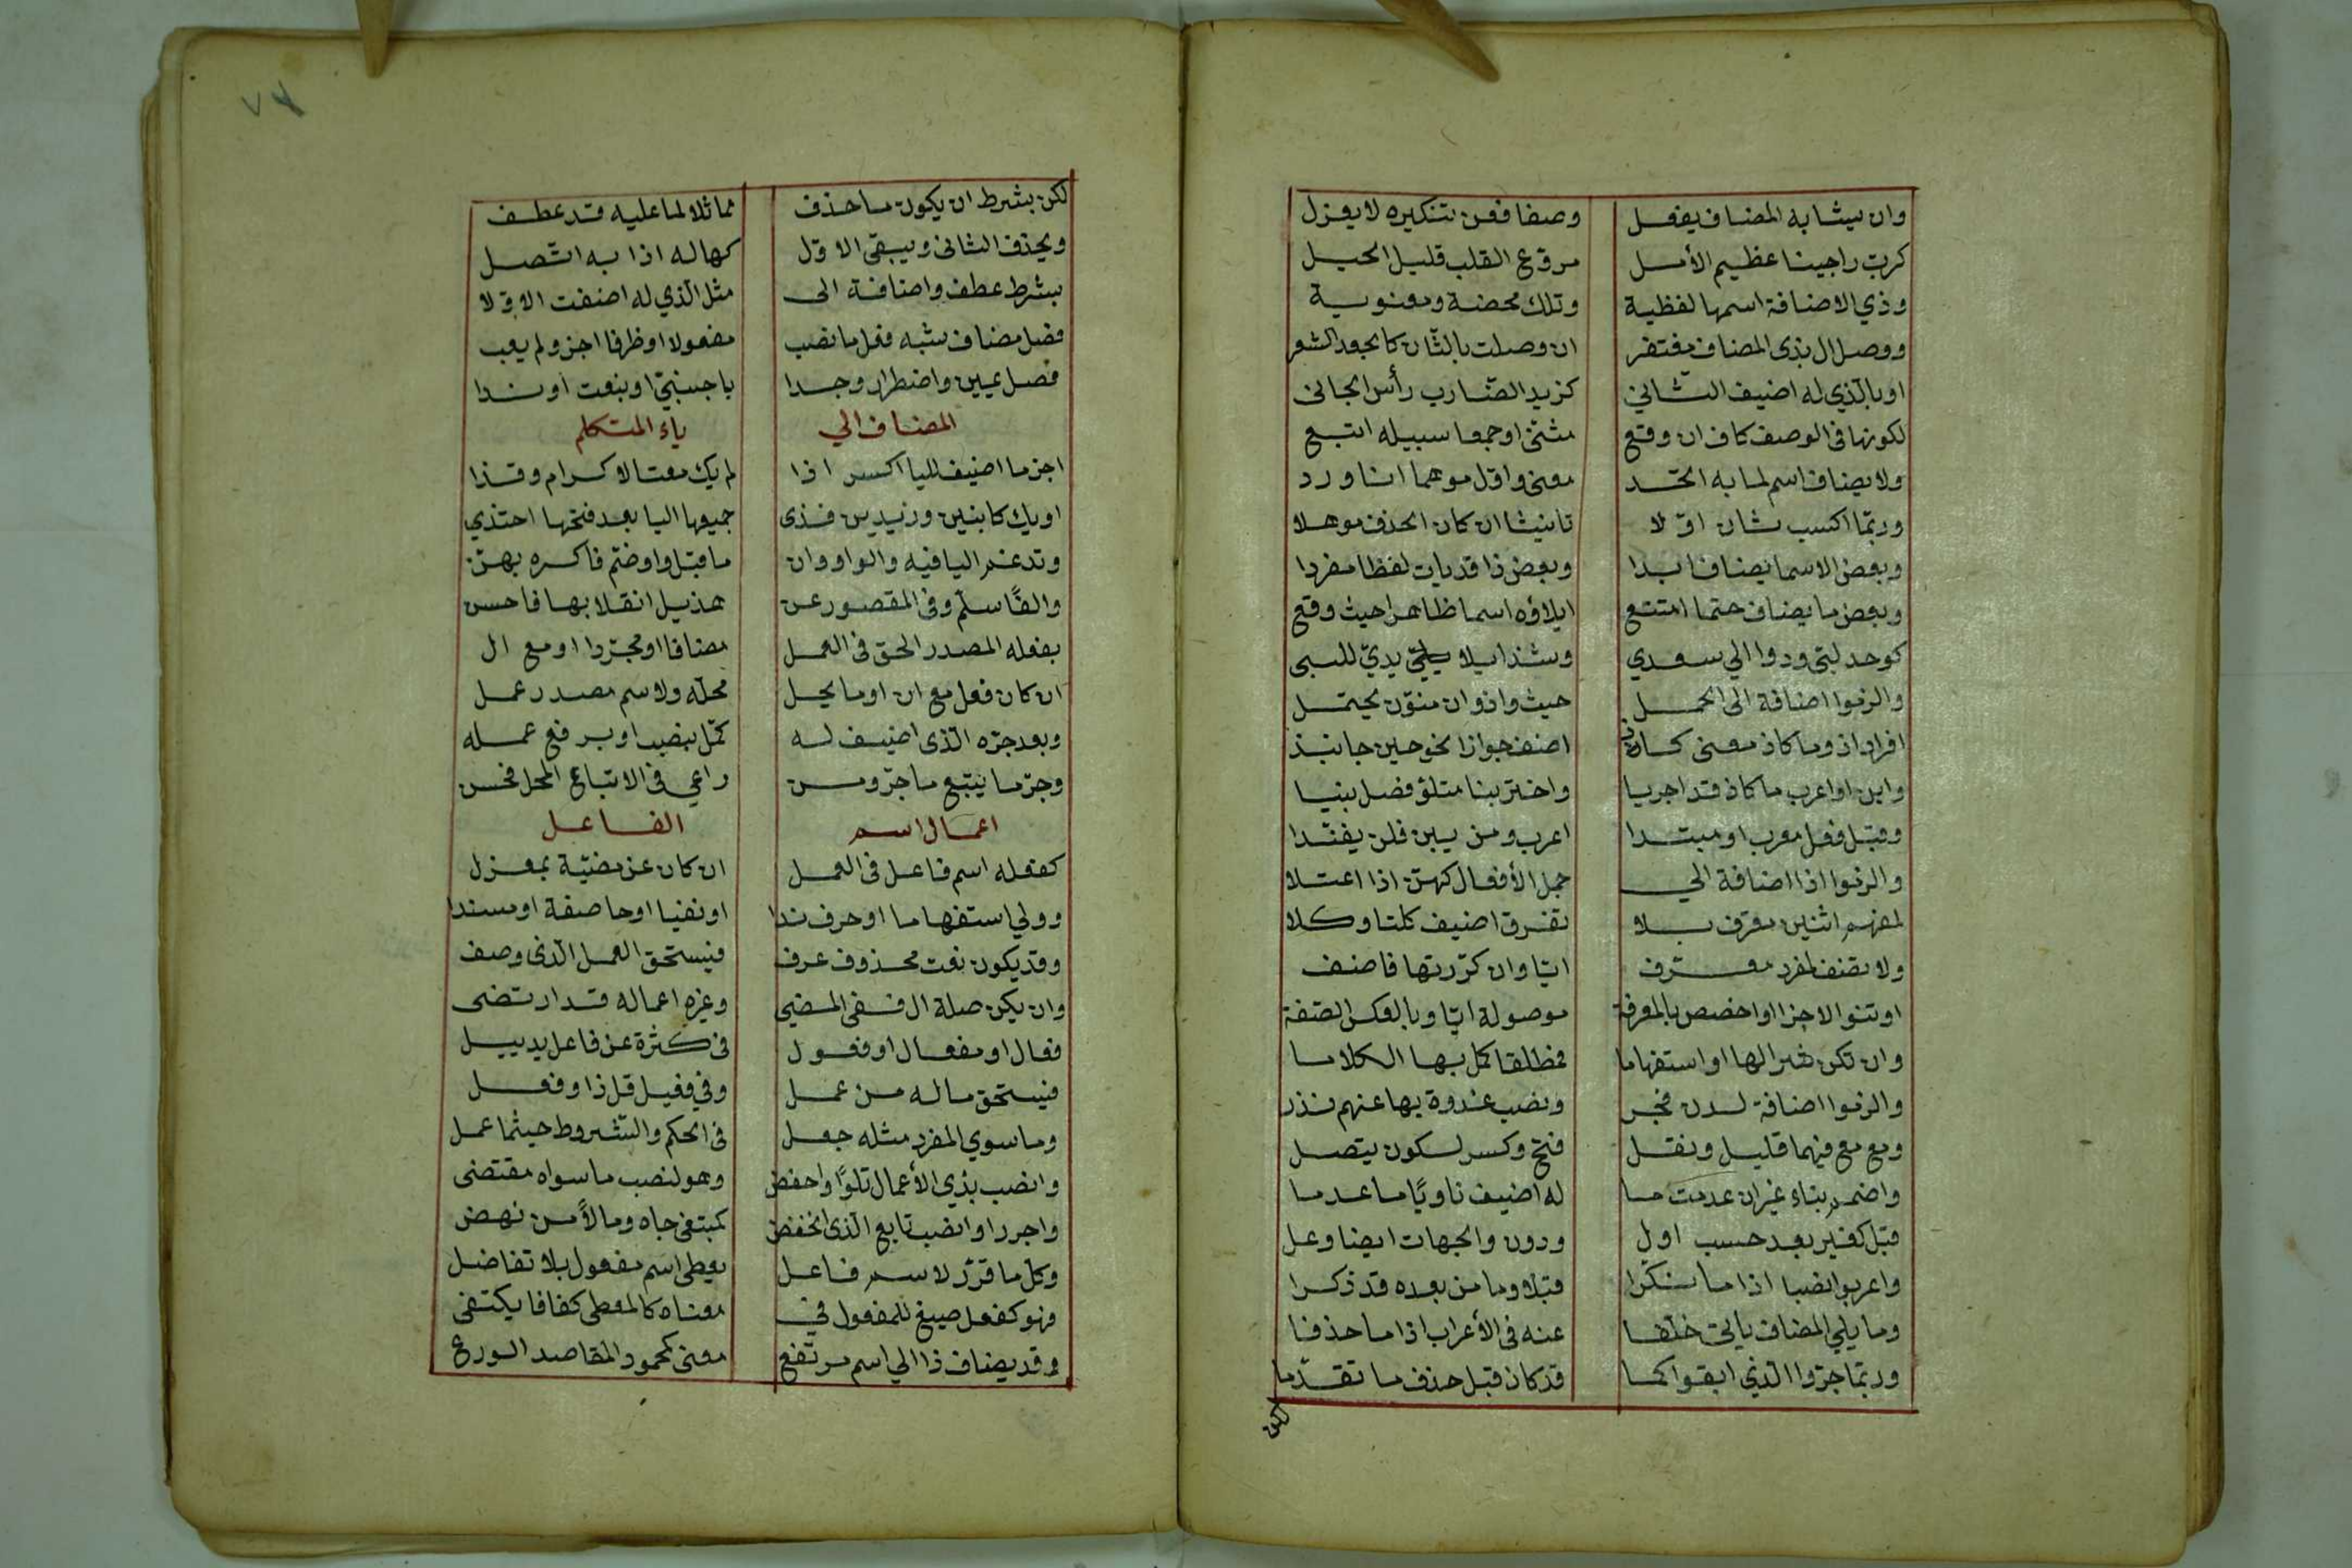 وان يشابه المضاف يفعل وصفا فعن تنكيره لا يعزل
كرب راجينا عظيم الأمل مروع القلب قليل الحيل
وذي الاضافة اسمها لفظية وتلك محضة ومعنوية
ووصل ال بذي المضاف مغتفر ان وصلت بالثان كالجعد الشعر
او بالذي له اضيف الثاني كزيد الضارب رأس الجاني
لكونها في الوصف كاف ان وقع مثنى او جمعا سبيله اتبع
ولا يضاف اسم لما به اتحد معنى واول موهما اذا ورد
وربما اكسب ثان اولا تانيثا ان كان لحذف موهلا
وبعض الاسما يضاف ابدا وبعض ذا قد يات لفظا مفردا
وبعض ما يضاف حتما امتنع ايلاؤه اسما ظاهرا حيث وقع
كوحد لبي ودوالي سعدي وشذ ايلا يدي للبي
والزموا اضافة الى الجمل حيث واذ وان ينون يحتمل
افراد اذ وما كاذ معنى كاذ اضف جوازا نحو حين جا نبذ
وابن او اعرب ما كاذ قد اجريا واختر بنا متلو فعل بنيا
وقبل فعل معرب او مبتدا اعرب ومن يبن فلن يفندا
والزموا اذا اضافة الى جمل الأفعال كهن اذا اعتلا
لمفهم اثنين معرف بلا تفرق اضيف كلتا وكلا
ولا تضف لمفرد معرف ايا وان كررتها فاضف
او تنو الاجزا واخصص بالمعرفة موصولة ايا وبالعكس الصفة
وان تكن شرطا او استفهاما فمطلقا كمل بها الكلاما
والزموا اضافة لدن فجر ونصب غدوة بها عنهم ندر
ومع مع فيها قليل ونقل فتح وكسر لسكون يتصل
واضمم بناء غير ان عدمت ما له اضيف ناويا ما عدما
قبل كغير بعد حسب اول ودون والجهات ايضا وعل
واعربوا نصبا اذا ما نكرا قبلا وما من بعده قد ذكرا
وما يلي المضاف ياتي خلفا عنه في الأعراب اذا ما حذفا
وربما جروا الذي ابقوا كما قد كان قبل حذف ما تقدما
لكن
٧٤
لكن بشرط ان يكون ما حذف مماثلا لما عليه قد عطف
ويحذف الثاني ويبقى الاول كحاله اذا به اتصل
بشرط عطف واضافة الى مثل الذي له اضفت الاولا
فصل مضاف شبه فعل ما نصب مفعولا او ظرفا اجز ولم يعب
فصل يمين واضطرار وجدا باجنبي او بنعت او ندا
المضاف الي ياء المتكلم
اجز ما اضيف لليا اكسر اذا لم يك معتلا كرام وقذا
او يك كابنين وزيدين فذي جميعها اليا بعد فتحها احتذي
وتدغم اليا فيه والواو وان ما قبل واو ضم فاكسره يهن
والفا سلم وفي المقصور عن هذيل انقلابها فا حسن
بفعله المصدر الحق في العمل مضافا او مجردا او مع ال
ان كان فعل مع ان او ما يحل محله ولاسم مصدر عمل
وبعد جره الذي اضيف له كمل بنصب او برفع عمله
وجر ما يتبع ما جر ومن راعى في الاتباع المحل فحسن
اعمال اسم الفاعل
كفعله اسم فاعل في العمل ان كان عن مضيه بمعزل
وولي استفهاما او حرف ندا او نفيا او جا صفة او مسندا
وقد يكون نعت محذوف عرف فيستحق العمل الذي وصف
وان يكن صلة ال ففي المضي وغيره اعماله قد ارتضى
فعال او مفعال او فعول في كثرة عن فاعل بديل
فيستحق ماله من عمل وفي فعيل قل ذا وفعل
وما سوى المفرد مثله جعل في الحكم والشروط حيثما عمل
وانصب بذي الأعمال تلوا واخفض وهو لنصب ما سواه مقتضى
واجرر او انصب تابع الذي انخفض كمبتغى جاه ومالا من نهض
وكل ما قرر لاسم فاعل يعطى اسم مفعول بلا تفاضل
فهو كفعل صيغ للمفعول في معناه كالمعطى كفافا يكتفى
وقد يضاف ذا الى اسم مرتفع معنى كمحمود المقاصد الورع